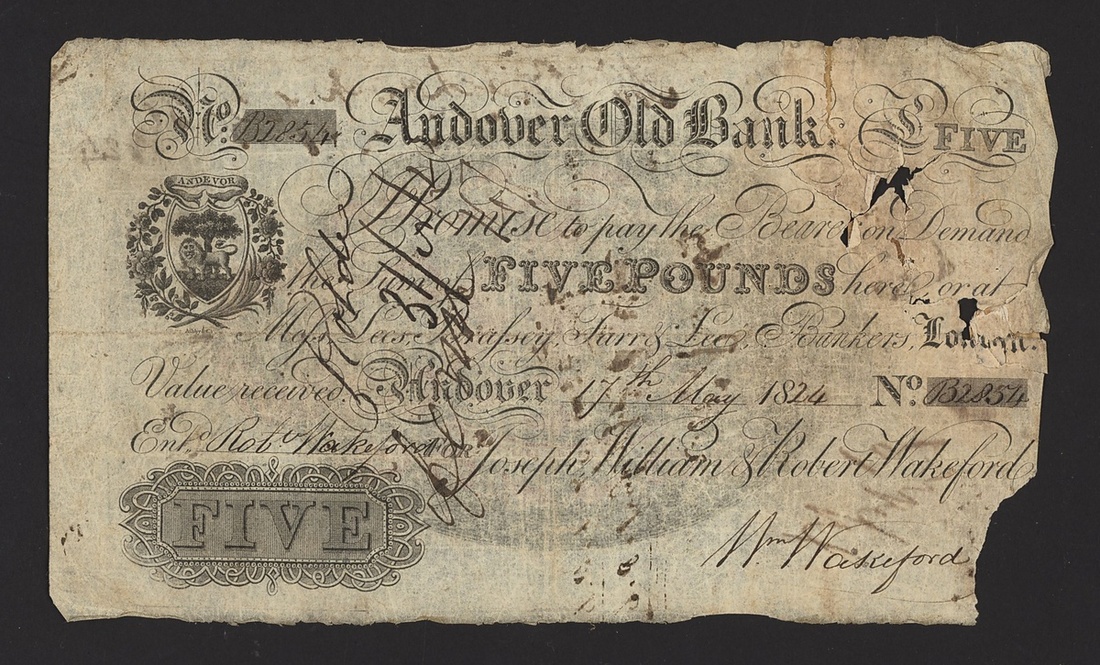 No. B2854 Andover Old Bank. £ FIVE
ANDEVOR
I Promise to pay the Bearer on Demand
the Sum of FIVE POUNDS here, or at
Mess. Lees, Brassey, Farr & Lee, Bankers, London.
Value received. Andover 17th May 1824 No. B2854
Entd. Robt Wakeford FOR Joseph, William & Robert Wakeford
FIVE
Wm Wakeford